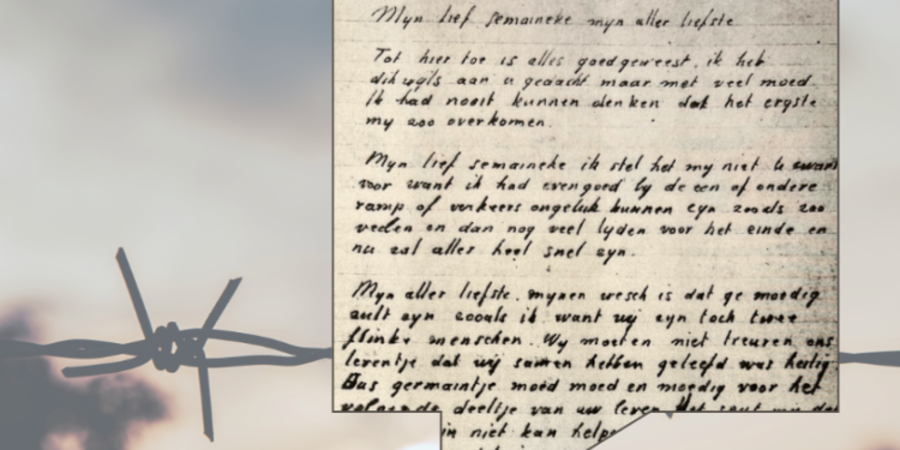 Myn lief semaineke myn aller liefste
Tot hier toe is alles goed geweest. ik heb
dikwyls aan u gedacht maar met veel moed
Ik had nooit kunnen denken dat het ergste
my zoo overkomen.
Myn lief semaineke ik stel het my niet te zwart
voor want ik had evengoed by de een of andere
ramp of verkeers ongeluk kunnen zyn zooals zoo
velen en dan nog veel lyden voor het einde en
nu zal alles heel snel zyn.
Myn aller liefste. mynen wesch is dat ge moedig
zult zyn zooals ik want wy zyn toch twee
flinke menschen. Wy moeten niet treuren ons
leventje dat wy samen hebben geleefd was heilig
Dus germaintje moed moed en moedig voor het
volgende deeltje van uw leven Het
in niet kan